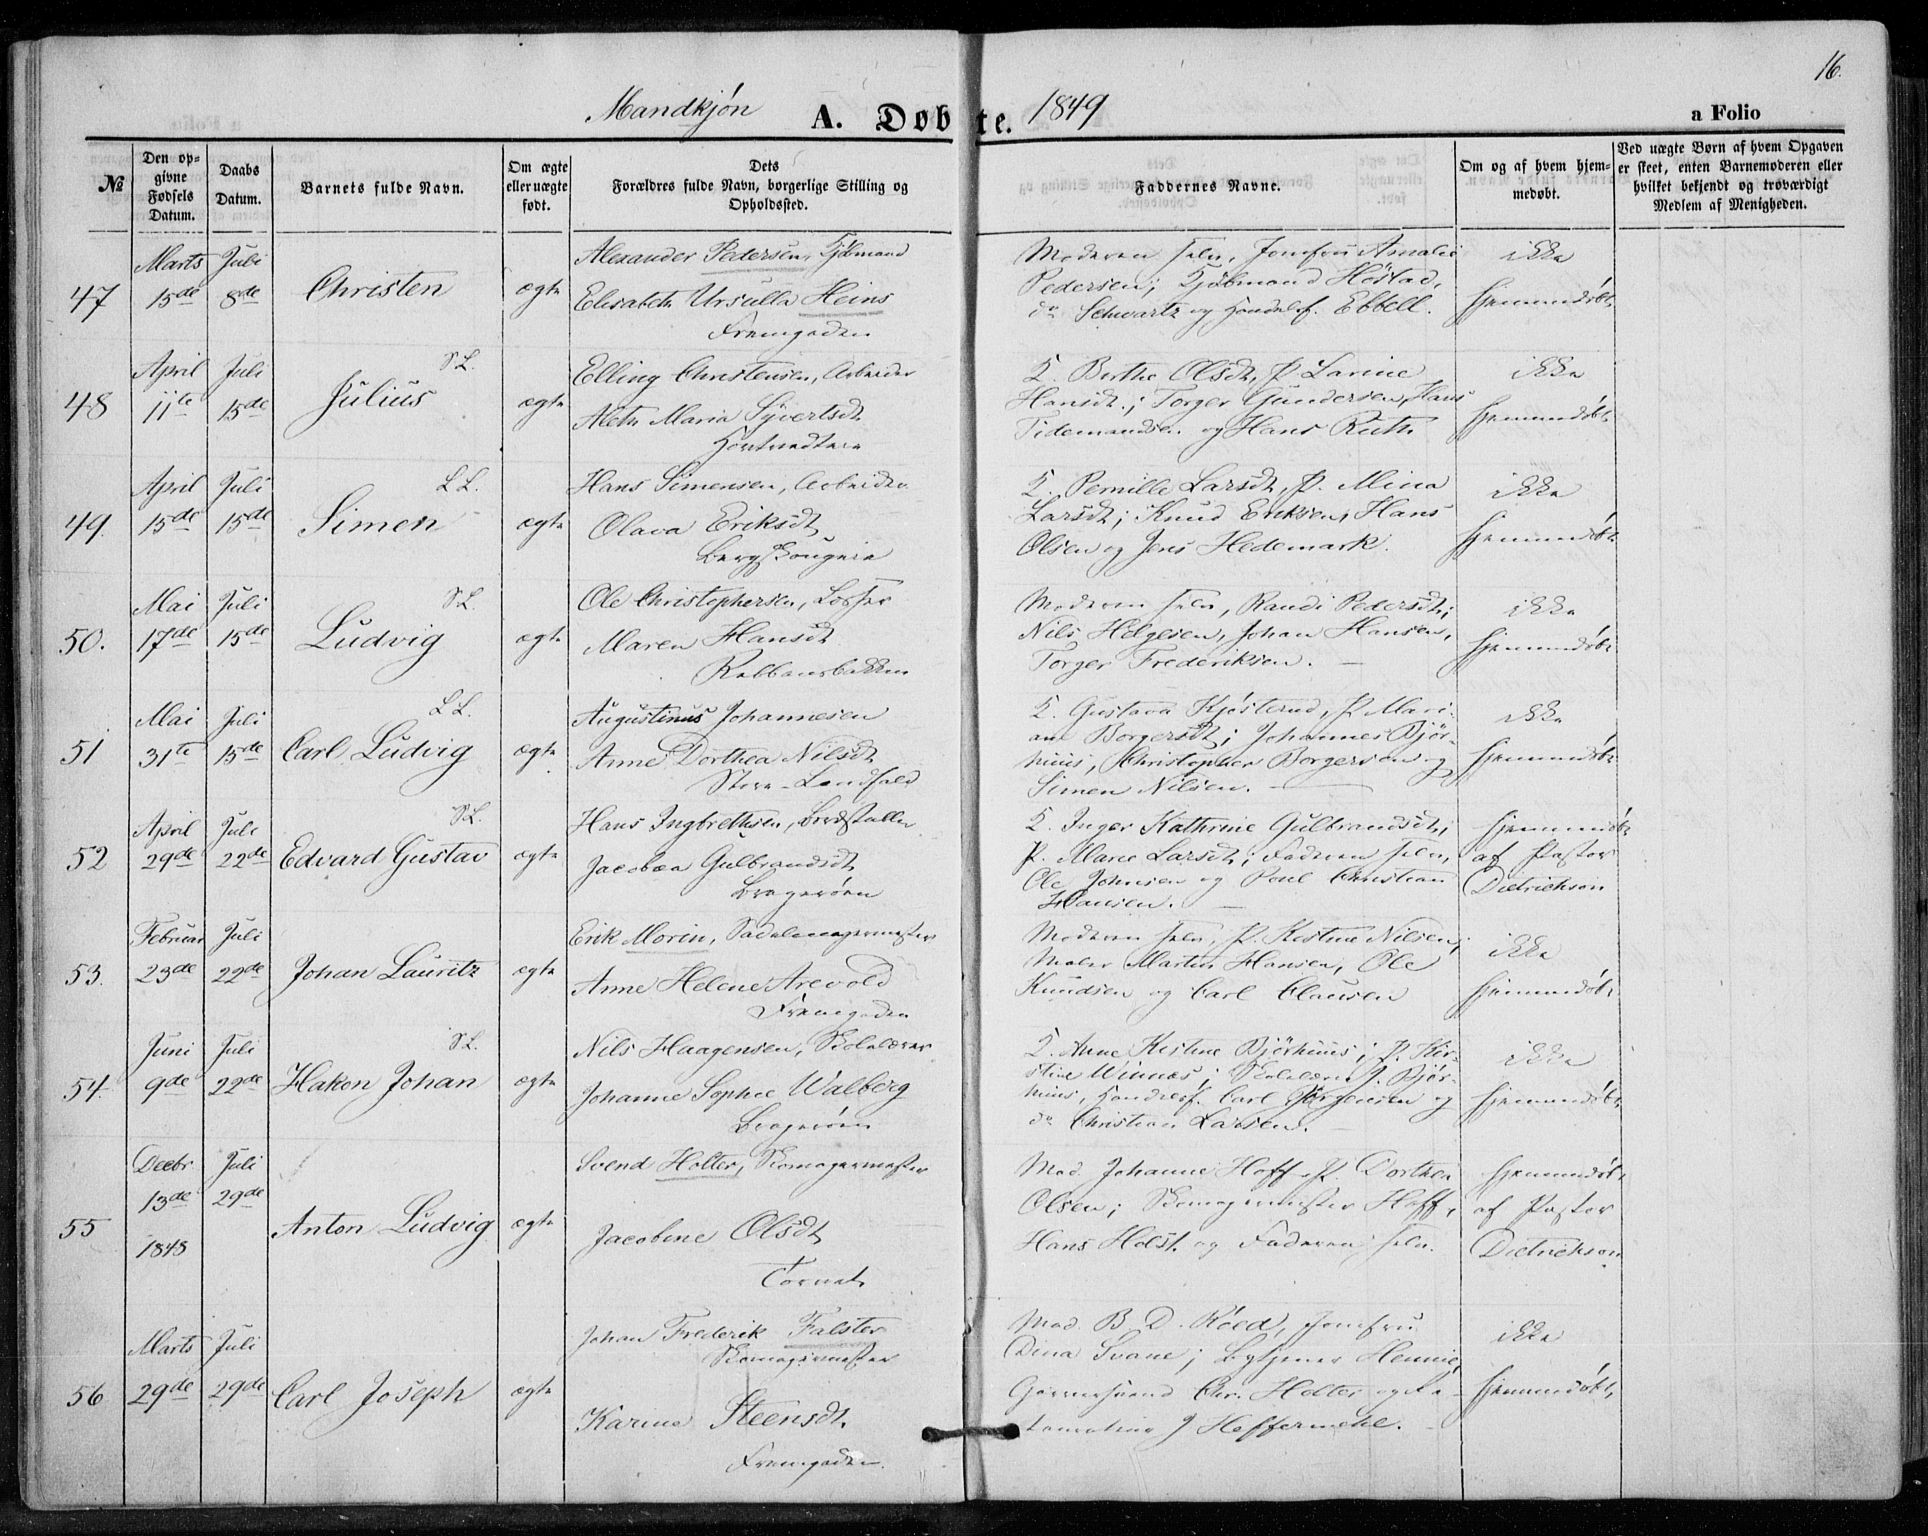 16.
Mandkjön A. Døbte. 1849 a Folio
№
Den opgivne Fødsels Datum.
Daabs Datum.
Barnets fulde Navn.
Om ægte eller uægte født.
Dets Forældres fulde Navn, borgerlige Stilling og Opholdssted.
Faddernes Navne.
Om og af hvem hjemmedøbt.
Ved uægte Børn af hvem Opgaven er skeet, enten Barnemoderen eller hvilket bekjendt og troværdigt Medlem af Menigheden.
47
Marts 15de
Juli 8de
Christen
ægte
Alexander Pedersen, Kjöbmand
Elisabeth Ursulla Heins
Fremgaden
Moderen selv, Jomfru Amalie
Pedersen; Kjöbmand Höstad,
do Schwartz og Handelsf. Ebbell.
ikke
hjemmedöbt
48
April 11te
Juli 15de
S.L.
Julius
ægte
Elling Christensen, Arbeider
Aleth Maria Syvertsdt
K. Berthe Olsdt, P. Larine
Hansdt.; Torger Gundersen, Hans
Tidemandsen og Hans Ruth
ikke
hjemmedöbt
49.
April 15de
Juli 15de
L.L.
Simen
ægte
Hans Simensen, Arbeider
Olava Eriksdt
Bergskougeie
K. Pernille Larsdt, P. Mina
Larsdt; Knud Eriksen, Hans
Olsen og Jens Hedemark.
ikke
hjemmedöbt
50.
Mai 17de
Juli 15de
S.L.
Ludvig
ægte
Ole Christophersen, Losser
Maren Hansdt
Moderen selv, Randi Pedersdt;
Nils Helgesen, Johan Hansen,
Torger Frederiksen.
ikke
hjemmedöbt
51
Mai 31te
Juli 15de
L.L.
Carl Ludvig
ægte
Augustinus Johannesen
Anne Dorthea Nilsdt
Store-Landfald
K. Gustava Kjösterud, P. Mari-
ane Borgersdt; Johannes Björ-
huus, Christopher Borgersen og
Simen Nilsen.
ikke
hjemmedöbt
52
April 29de
Juli 22de
S.L.
Edvard Gustav
ægte
Hans Ingbrethsen, Brödstaller
Jacobea Gulbrandsdt
Bragerøen
K. Inger Kathrine Gulbrandsdt;
P. Marie Larsdt; Faderen selv,
Ole Johnsen og Poul Christian
Hansen.
hjemmedöbt
af Pastor
Dietrichson
53.
Februar 23de
Juli 22de
Johan Lauritz
ægte
Erik Morin, Sadelmagermester
Anne Helene Arevold
Fremgaden
Moderen selv, P. Kestine Nilsen;
Maler Martin Hansen, Ole
Knudsen og Carl Clausen
ikke
hjemmedöbt
54.
Juni 9de
Juli 22de
S.L.
Hakon Johan
ægte
Nils Haagensen, Skolelærer
Johanne Sophie Walberg
Bragerøen
K. Anne Kestine Björhuus; P. Kir-
stine Winnes; Skolelærer J. Björ-
huus, Handelsf. Carl Jörgensen og
do Christian Larsen.
ikke
hjemmedöbt
55
Decbr 13de 1848
Juli 29de
Anton Ludvig
ægte
Svend Holter, Skomagermester
Jacobine Olsdt
Tornet
Mad. Johanne Hoff, P. Dorthea
Olsen; Skomagermester Hoff,
Hans Holst og Faderen selv.
hjemmedöbt
af Pastor
Dietrichson
56
Marts 29de
Juli 29de
Carl Joseph
ægte
Johan Frederik Falster
Skomagermester
Karine Steensdt
Fremgaden
Mad. B. D. Röed, Jomfru
Dina Svane; Bytjener Hennie
Chr. Holter og
J Heffermehl.
ikke
hjemmedöbt